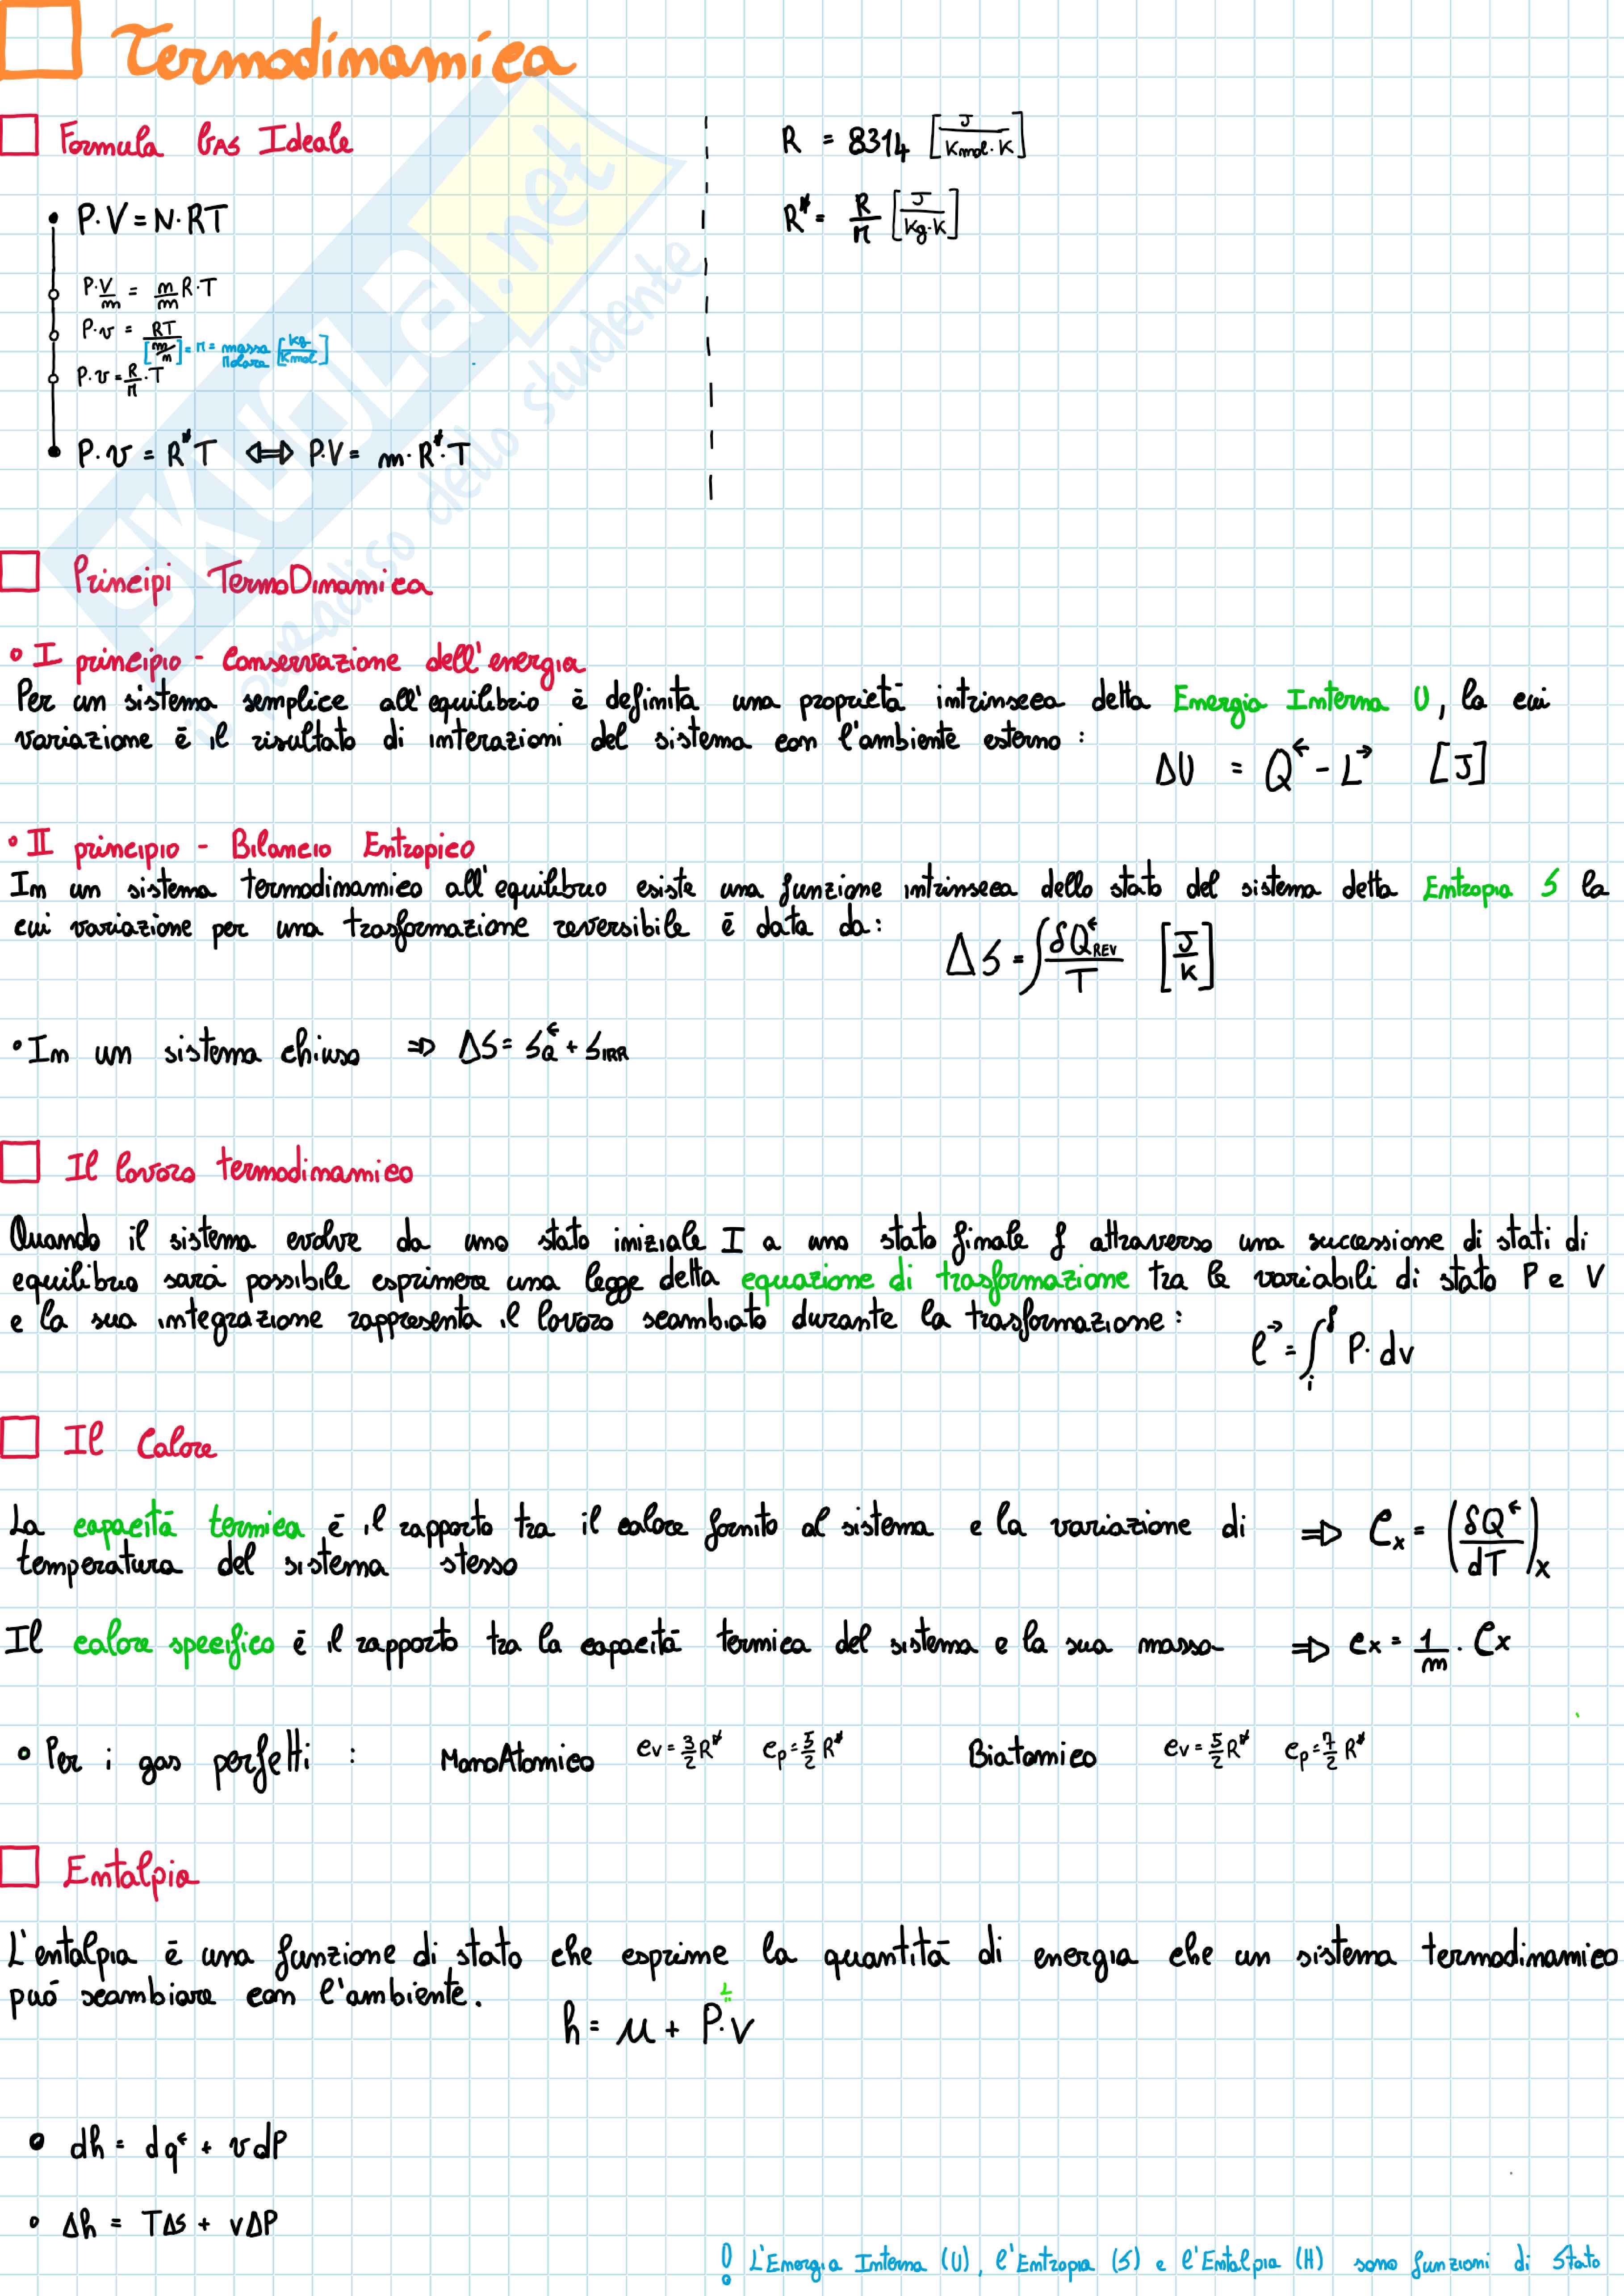 Termodinamica
Formula Gas Ideale
P·V = N·RT
P·V/m = n/m R·T
P·v = RT/[m/n] = M = massa molare [kg/Kmol]
P·v = R/M · T
P·v = R*T ⟺ P·V = m·R*·T
R = 8314 [J/Kmol·K]
R* = R/M [J/kg·K]
Principi TermoDinamica
• I principio - Conservazione dell'energia
Per un sistema semplice all'equilibrio è definita una proprietà intrinseca detta Energia Interna U, la cui
variazione è il risultato di interazioni del sistema con l'ambiente esterno:
ΔU = Q← - L→ [J]
• II principio - Bilancio Entropico
In un sistema termodinamico all'equilibrio esiste una funzione intrinseca dello stato del sistema detta Entropia S la
cui variazione per una trasformazione reversibile è data da:
ΔS = ∫ δQ←REV / T [J/K]
• In un sistema chiuso ⇒ ΔS = SQ← + SIRR
Il lavoro termodinamico
Quando il sistema evolve da uno stato iniziale I a uno stato finale f attraverso una successione di stati di
equilibrio sarà possibile esprimere una legge detta equazione di trasformazione tra le variabili di stato P e V
e la sua integrazione rappresenta il lavoro scambiato durante la trasformazione:
l→ = ∫ᵢᶠ P·dv
Il Calore
La capacità termica è il rapporto tra il calore fornito al sistema e la variazione di ⇒ Cx = (δQ←/dT)x
temperatura del sistema stesso
Il calore specifico è il rapporto tra la capacità termica del sistema e la sua massa ⇒ cx = 1/m · Cx
• Per i gas perfetti: MonoAtomico cv = 3/2 R* cp = 5/2 R* Biatomico cv = 5/2 R* cp = 7/2 R*
Entalpia
L'entalpia è una funzione di stato che esprime la quantità di energia che un sistema termodinamico
può scambiare con l'ambiente.
h = u + P·v
L
• dh = dq← + vdP
• Δh = TΔS + vΔP
! L'Energia Interna (U), l'Entropia (S) e l'Entalpia (H) sono funzioni di Stato
SKUOLA.net
il paradiso dello studente